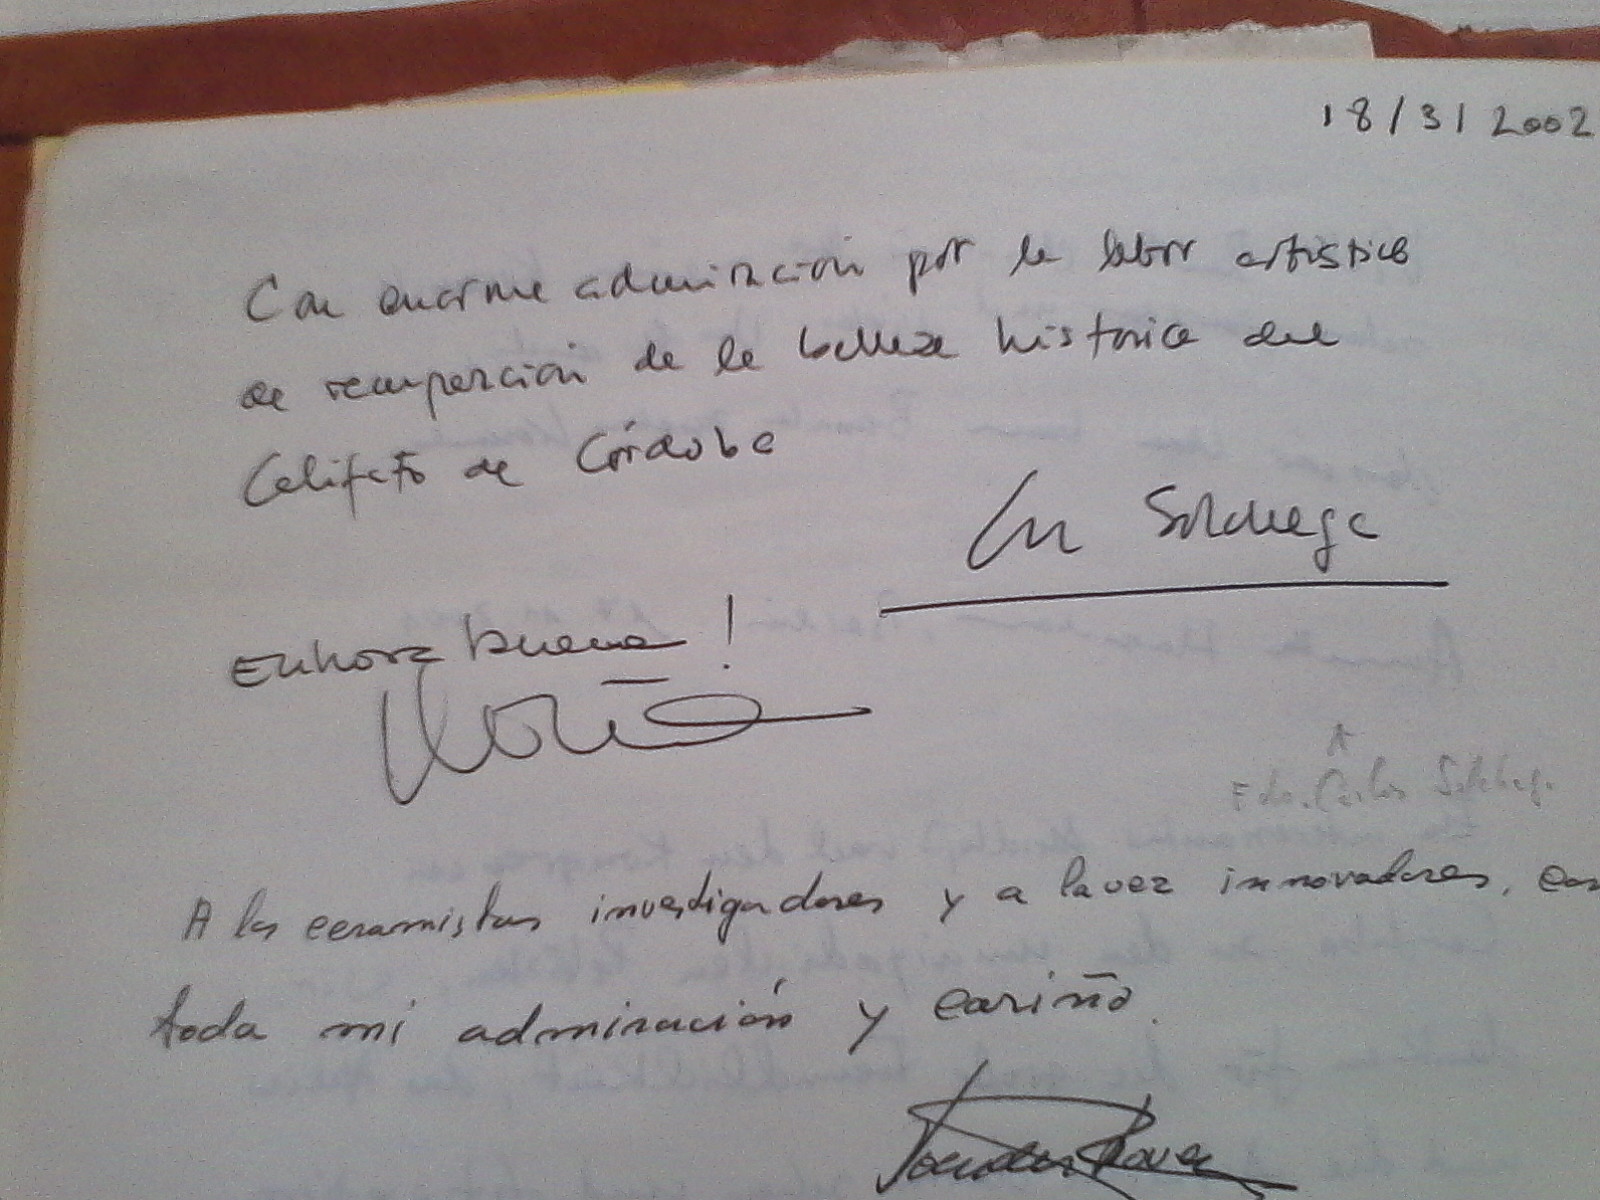 18/3/2002
Con enorme admiración por la labor artística
de recuperación de la belleza histórica del
Califato de Córdoba
Solchaga
Enhorabuena!
Fdo. Carlos Solchaga
A los ceramistas investigadores y a la vez innovadores, con
toda mi admiración y cariño.